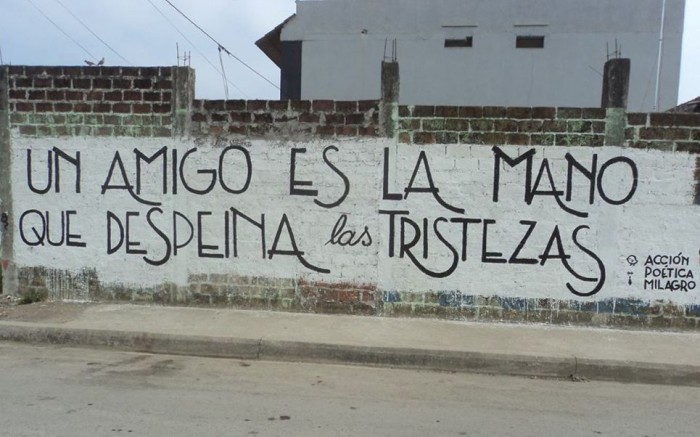 UN AMIGO ES LA MANO
QUE DESPEINA las TRISTEZAS
ACCIÓN
POÉTICA
MILAGRO